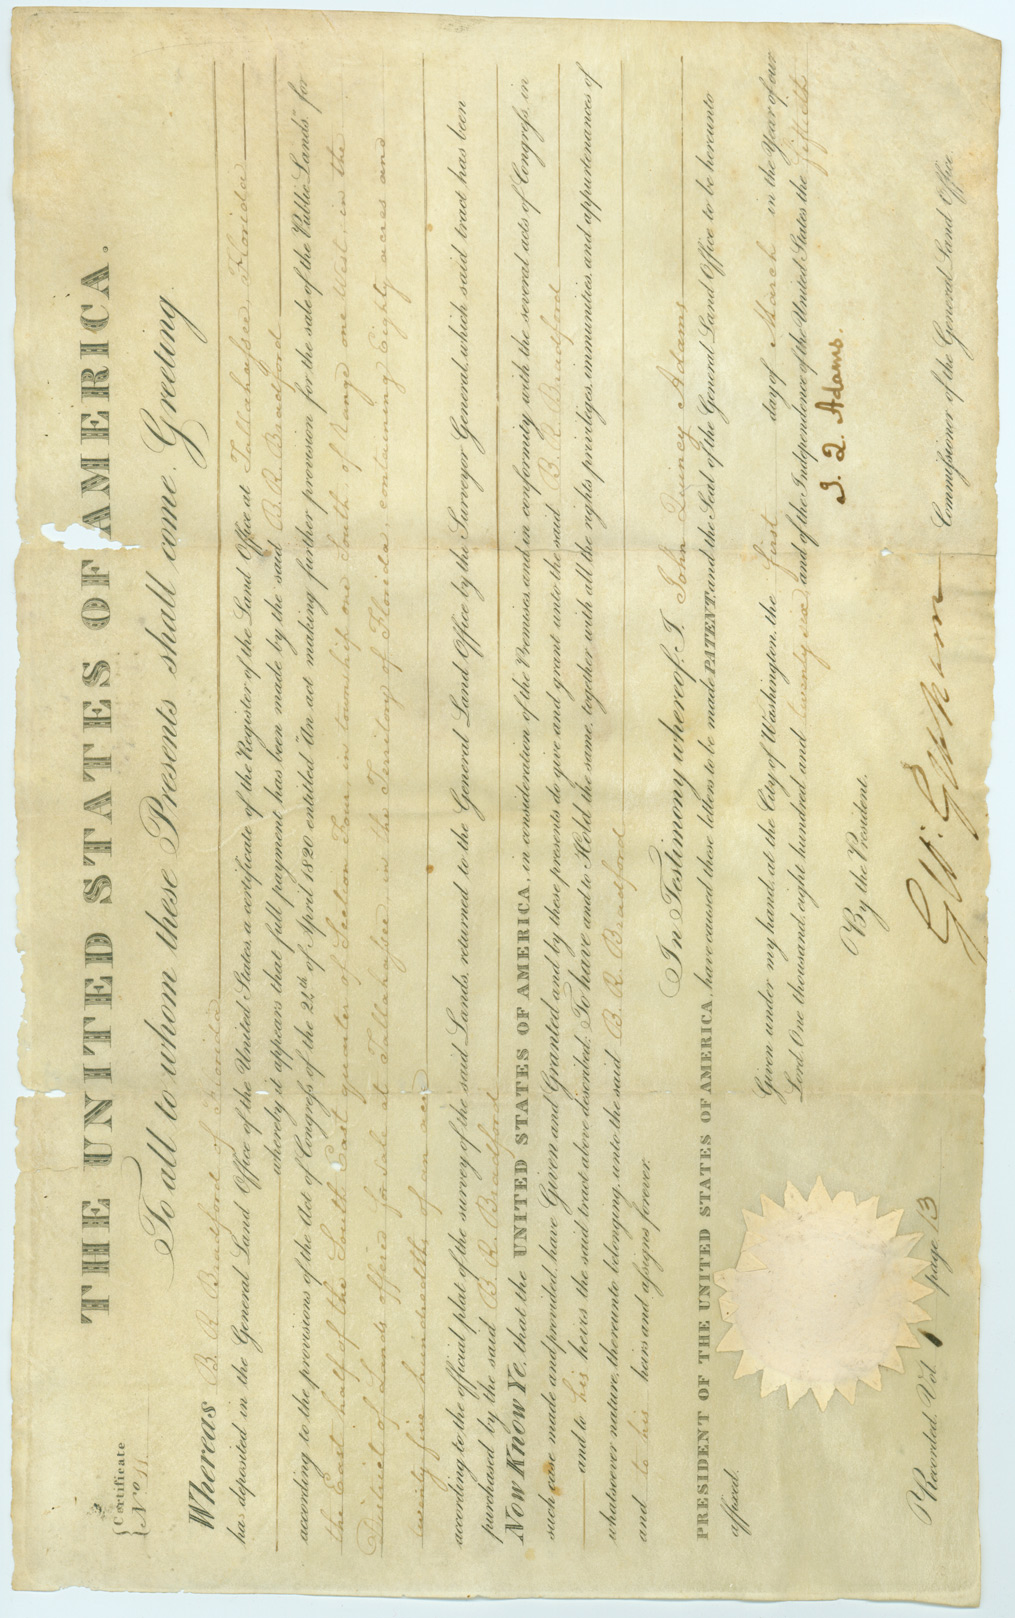 THE UNITED STATES OF AMERICA.
Certificate
No. 11.
To all to whom these Presents shall come, Greeting
Whereas B. R. Bradford of Florida
has deposited in the General Land Office of the United States, a certificate of the Register of the Land Office at Tallahassee, Florida
whereby it appears that full payment has been made by the said B. R. Bradford
according to the provisions of the Act of Congress of the 24th of April 1820 entitled "An act making further provision for the sale of the Public Lands" for
the East half of the South East quarter of Section Four, in township one South, of Range one West, in the
District of Lands offered for sale at Tallahassee, in the Territory of Florida, containing Eighty acres and
twenty five hundredths of an acre
according to the official plat of the survey of the said Lands, returned to the General Land Office by the Surveyor General, which said tract has been
purchased by the said B. R. Bradford
NOW KNOW YE, that the UNITED STATES OF AMERICA, in consideration of the Premises, and in conformity with the several acts of Congress, in
such case made and provided, have Given and Granted, and by these presents do give and grant unto the said B. R. Bradford
and to his heirs the said tract above described; To have and to Hold the same, together with all the rights privileges, immunities, and appurtenances of
whatsoever nature, thereunto belonging, unto the said B. R. Bradford
and to his heirs and assigns forever.
In Testimony whereof, I, John Quincy Adams
PRESIDENT OF THE UNITED STATES OF AMERICA, have caused these letters to be made PATENT, and the Seal of the General Land Office to be hereunto
affixed.
Given under my hand, at the City of Washington, the first day of March in the Year of our
Lord One thousand, eight hundred and twenty six, and of the Independence of the United States the fiftieth
J. Q. Adams.
By the President.
Commissioner of the General Land Office
Recorded, Vol. 1 page 13